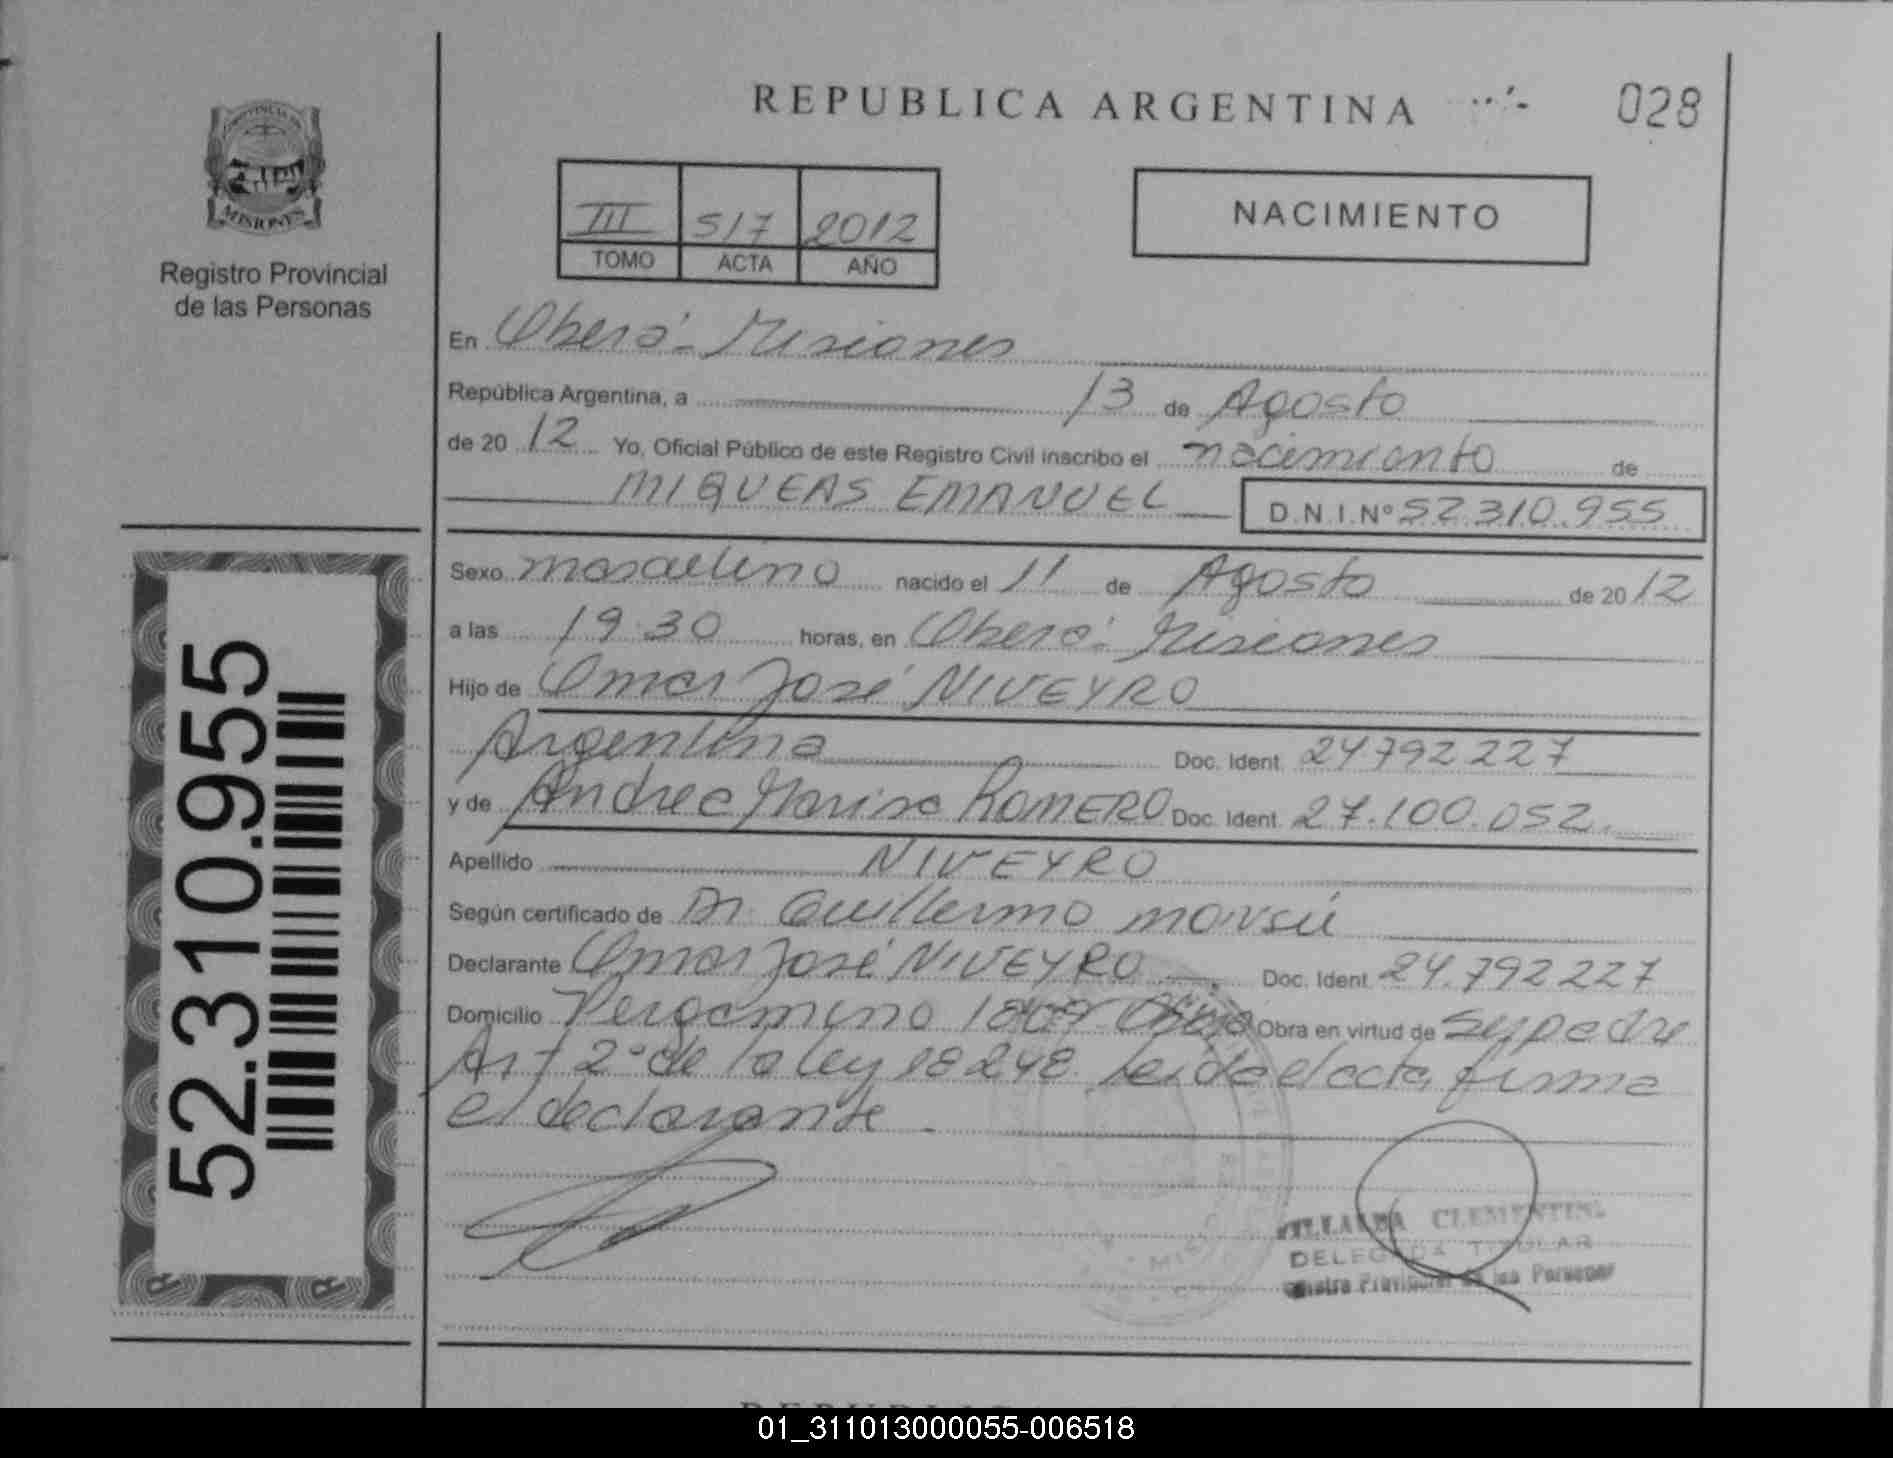 REPUBLICA ARGENTINA
028
PROVINCIA DE
MISIONES
Registro Provincial
de las Personas
III 517 2012
TOMO ACTA AÑO
NACIMIENTO
En Oberá - Misiones
República Argentina, a 13 de Agosto
de 20 12 Yo, Oficial Público de este Registro Civil inscribo el nacimiento de
MIQUEAS EMANUEL D.N.I.Nº 52.310.955
Sexo masculino nacido el 11 de Agosto de 20 12
a las 19.30 horas, en Oberá - Misiones
Hijo de Omar José NIVEYRO
Argentina Doc. Ident. 24792227
y de Andrea Marisa ROMERO Doc. Ident. 27.100.052.
Apellido NIVEYRO
Según certificado de Dr. Guillermo
Declarante Omar José NIVEYRO Doc. Ident. 24.792227
Domicilio Pergamino Obra en virtud de ser padre
Art 2º de la ley 18248. Leída el acta, firma
el declarante.
VILLALBA CLEMENTINA
DELEGADA TITULAR
Registro Provincial de las Personas
52.310.955
R R
01_311013000055-006518